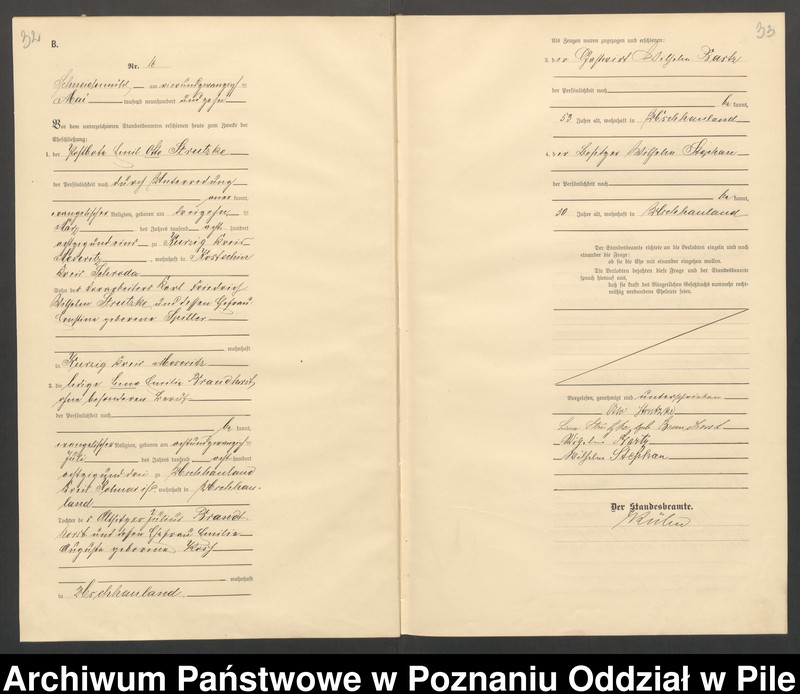 32
B.
Nr. 16
Schneidemühl, am vierundzwanzigsten
Mai tausend neunhundert und zehn
Vor dem unterzeichneten Standesbeamten erschienen heute zum Zwecke der
Eheschließung:
1. der Postbote Emil Otto Streitzke
der Persönlichkeit nach durch Unterredung
kannt,
evangelischer Religion, geboren am dreizehnten
März des Jahres tausend acht hundert
achtzig und eins zu Kurzig Kreis
Meseritz, wohnhaft in Kostschin
Kreis Schroda
Sohn des Karl Friedrich
Wilhelm Streitzke und dessen Ehefrau
Ernstine geborene Spiller
wohnhaft
in Kurzig Kreis Meseritz
2. die ledige Lina Emilie Brandhorst
ohne besonderen Beruf
der Persönlichkeit nach
be kannt,
evangelischer Religion, geboren am achtundzwanzigsten
Juli des Jahres tausend acht hundert
achtzig und drei zu Uschhauland
Kreis Kolmar i/P wohnhaft in Uschhau-
land
Tochter des Altsitzer Julius Brand-
horst und dessen Ehefrau Emilie
Auguste geborene
wohnhaft
in Uschhauland
33
Als Zeugen waren zugezogen und erschienen:
3. der Gastwirt Wilhelm
der Persönlichkeit nach
be kannt,
53 Jahre alt, wohnhaft in Uschhauland
4. der Besitzer Wilhelm Stephan
der Persönlichkeit nach
be kannt,
30 Jahre alt, wohnhaft in Uschhauland
Der Standesbeamte richtete an die Verlobten einzeln und nach
einander die Frage:
ob sie die Ehe mit einander eingehen wollen.
Die Verlobten bejahten diese Frage und der Standesbeamte
sprach hierauf aus,
daß sie kraft des Bürgerlichen Gesetzbuchs nunmehr recht-
mäßig verbundene Eheleute seien.
Vorgelesen, genehmigt und unterschrieben
Otto Streitzke
Lina Streitzke geb. Brandhorst
Wilhelm
Wilhelm Stephan
Der Standesbeamte.
Archiwum Państwowe w Poznaniu Oddział w Pile